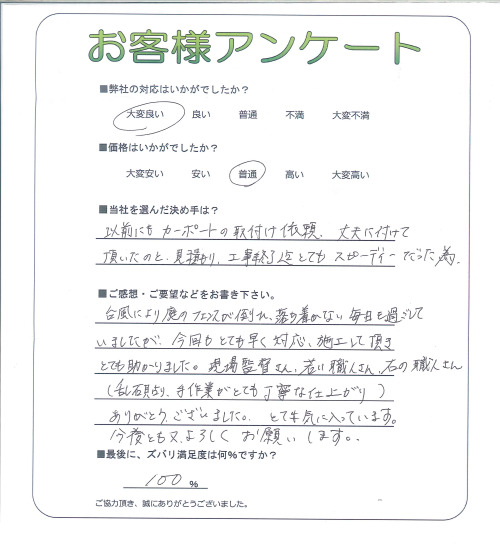 お客様アンケート
■弊社の対応はいかがでしたか?
大変良い 良い 普通 不満 大変不満
■価格はいかがでしたか?
大変安い 安い 普通 高い 大変高い
■当社を選んだ決め手は?
以前にもカーポートの取付け依頼、丈夫に付けて
頂いたのと、見積もり、工事終了迄とてもスピーディーだった為。
■ご感想・ご要望などをお書き下さい。
台風により庭のフェンスが倒れ、落ち着かない毎日を過ごして
いましたが、今回もとても早く対応、施工して頂き
とても助かりました。現場監督さん、若い職人さん、石の職人さん
(乱石貝より、手作業がとても丁寧な仕上がり)
ありがとうございました。とても気に入っています。
今後とも又、よろしくお願いします。
■最後に、ズバリ満足度は何%ですか?
100 %
ご協力頂き、誠にありがとうございました。